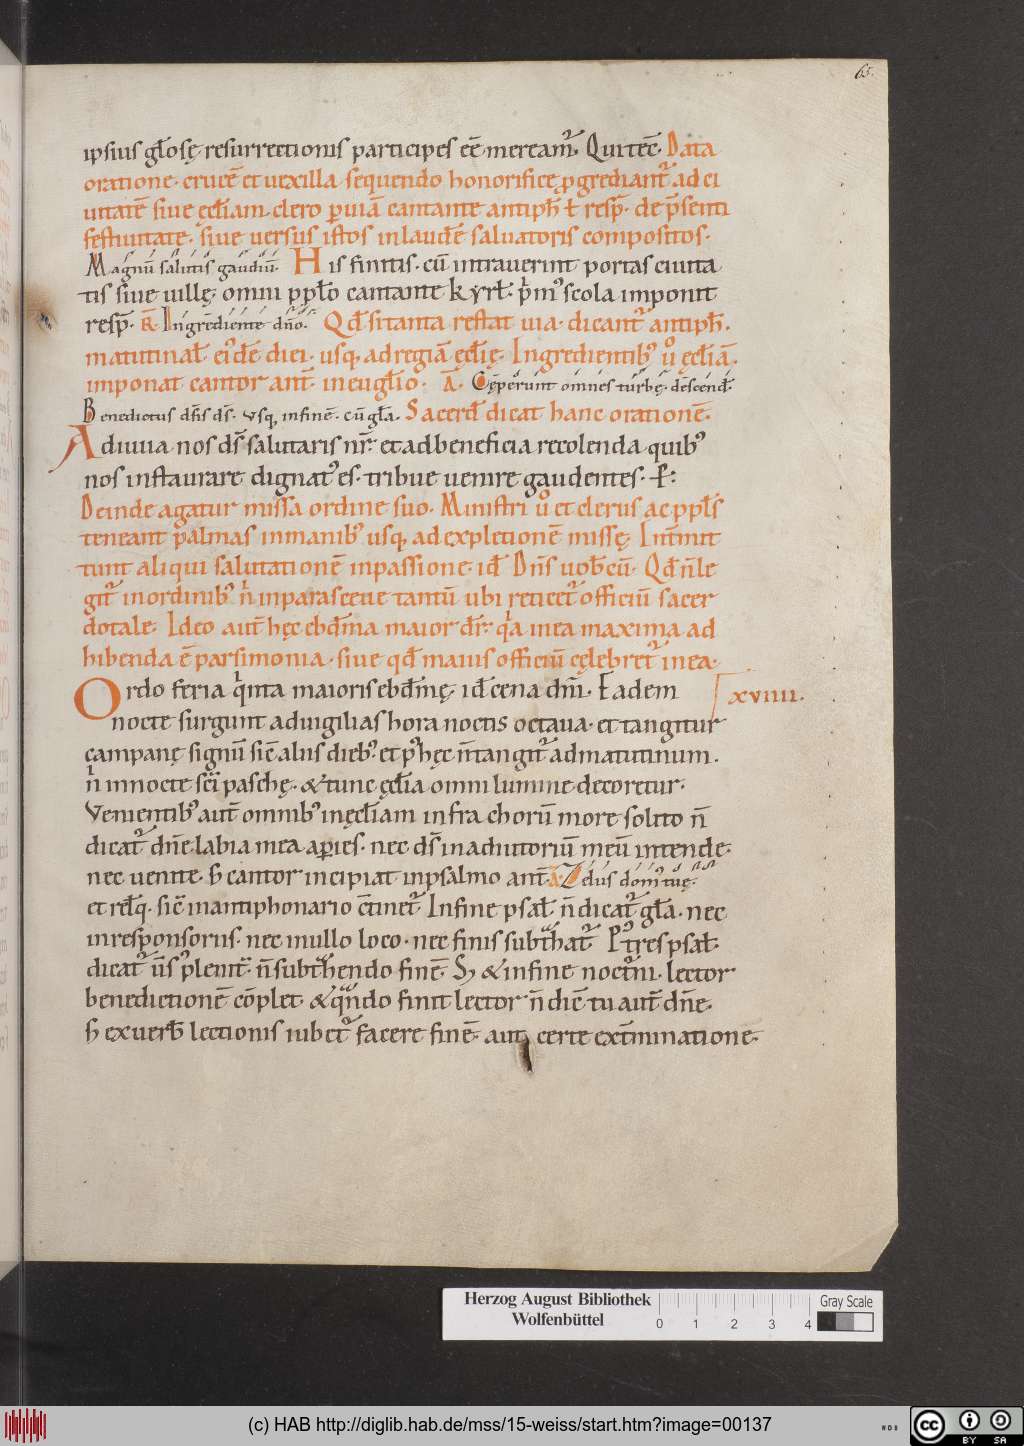 65.
ipsius gl̄osę resurrectionis participes eē meream̄. Qui tec̄. Data
oratione. crucē et uexilla sequendo honorifice p̱grediant̄ ad ci
uitatē siue ęccl̄iam. clero p̱ uiā cantante antiph̄ ł resp̄. de p̄senti
festiuitate. siue uersus istos in laudē saluatoris compositos.
Magnū salutis gaudiū. His finitis. cū intrauerint portas ciuita
tis siue uillę. omni pp̄lo cantante kyrł. p̄m᾽ scola imponit
resp̄. R̄ Ingrediente dn̄o. Qd̄ si tanta restat uia. dicant̄ antiph̄.
matutinał ei᾽dē diei. usq, ad regiā ęcl̄ię. Ingredientib᾽ ů ęcl̄iā.
imponat cantor ant̄. in euglīo. Ā. Cęperunt omnes turbę. descend̄.
Benedictus dn̄s ds̄. usq, in finē. cū gl̄a. Sacerd̄ dicat hanc orationē.
Adiuua nos ds̄ salutaris nr̄. et ad beneficia recolenda quib᾽
nos instaurare dignat᾽ es. tribue uenire gaudentes. P̄:
Deinde agatur missa ordine suo. Ministri ů et clerus ac ppl̄s
teneant palmas in manib᾽ usq, ad expletionē missę. Int̄mit
tunt aliqui salutationē in passione. id̄ Dn̄s uob̄cū. Qd̄ n̄ le
git̄ in ordinib᾽ n̄ in parasceue tantū ubi reticet̄ officiū sacer
dotale. Ideo aut̄ hęc ebd̄ma maior dr̄. qa in ea maxima ad
hibenda ē parsimonia. siue qd̄ maius officiū cęlebret̄ in ea.
Ordo feria qinta maioris ebd̄mę. id̄ cena dn̄i. Eadem xviiii.
nocte surgunt ad uigilias hora noctis octaua. et tangitur
campanę signū sic̄ aliis dieb᾽. et p᾽ hęc n̄ tangit̄ ad matutinum.
n̄ in nocte sc̄i paschę. & tunc ęcl̄ia omni lumine decoretur.
Venientib᾽ aut̄ omnib᾽ in ęcl̄iam infra chorū more solito n̄
dicat̄ dn̄e labia mea ap̱ies. nec ds̄ in adiutoriū meū intende.
nec uenite. s̄ cantor incipiat in psalmo ant̄. Ā Zelus dom᾽ tuę.
et relq̄. sic̄ in antiphonario c̄tinet̄. In fine psał. n̄ dicat̄ gl̄a. nec
in responsoriis. nec in ullo loco. nec finis subt̄hat̄. P᾽ tres psał.
dicat̄ ūs p᾽ lenit̄. n̄ subt̄hendo finē. Sȝ & in fine noct̄ni. lector
benedictionē cōplet. & qn̄do finit lector n̄ dic̄ tu aut̄ dn̄e.
s̄ ex uerb̄ lectionis iubet̄ facere finē. aut certe ext̄minatione.
Herzog August Bibliothek
Wolfenbüttel
0 1 2 3 4
Gray Scale
(c) HAB http://diglib.hab.de/mss/15-weiss/start.htm?image=00137
cc BY SA